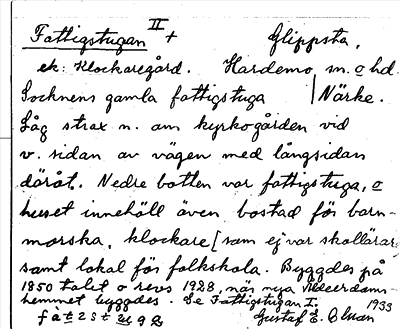 Fattigstugan II + Glippsta.
ek. Klockaregård. Hardemo sn. o hd.
Socknens gamla fattigstuga | Närke.
Låg strax n. om kyrkogården vid
v. sidan av vägen med långsidan
däråt. Nedre botten var fattigstuga, o
huset innehöll även bostad för barn-
morska, klockare [som ej var skollärare
samt lokal för folkskola. Byggdes på
1850 talet o revs 1928, när nya Ålderdoms-
hemmet byggdes. Se Fattigstugan I. 1933
Gustaf E.